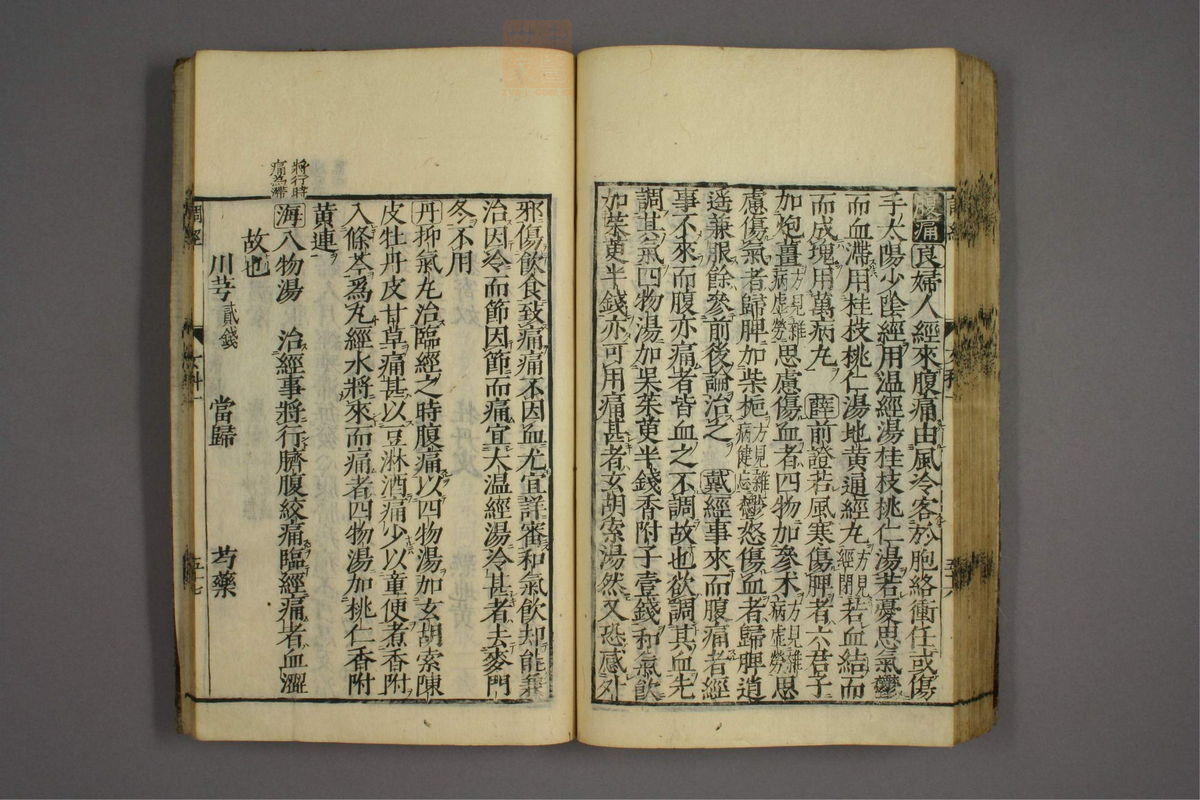 腹痛良婦人經來腹痛由風冷客於胞絡衝任或傷
手太陽少陰經用温經湯桂枝桃仁湯若憂思氣鬱
而血滯用桂枝桃仁湯地黄通經丸方見上經閉若血結而
而成塊用萬病丸 薛前證若風寒傷脾者六君子
加炮薑方見雜病虚勞思慮傷血者四物加參术方見雜病虚勞思
慮傷氣者歸脾加柴梔方見雜病健忘鬱怒傷血者歸脾逍
遥兼服餘參前後論治之 戴經事來而腹痛者經
事不來而腹亦痛者皆血之不調故也欲調其血先
調其氣四物湯加呉茱萸半錢香附子壹錢和氣飲
加茱萸半錢亦可用痛甚者玄胡索湯然又恐感外
邪傷飲食致痛痛不因血尤宜詳審和氣飲却能兼
治因冷而節因節而痛宜大温經湯冷甚者去麥門
冬不用
丹抑氣丸治臨經之時腹痛以四物湯加玄胡索陳
皮牡丹皮甘草痛甚以豆淋酒痛少以童便煮香附
入條芩爲丸經水將來而痛者四物湯加桃仁香附
黄連
將行時痛為滯
海八物湯 治經事將行臍腹絞痛臨經痛者血澀
故也
川芎貳錢 當歸 芍藥
調經 女科一 五十七